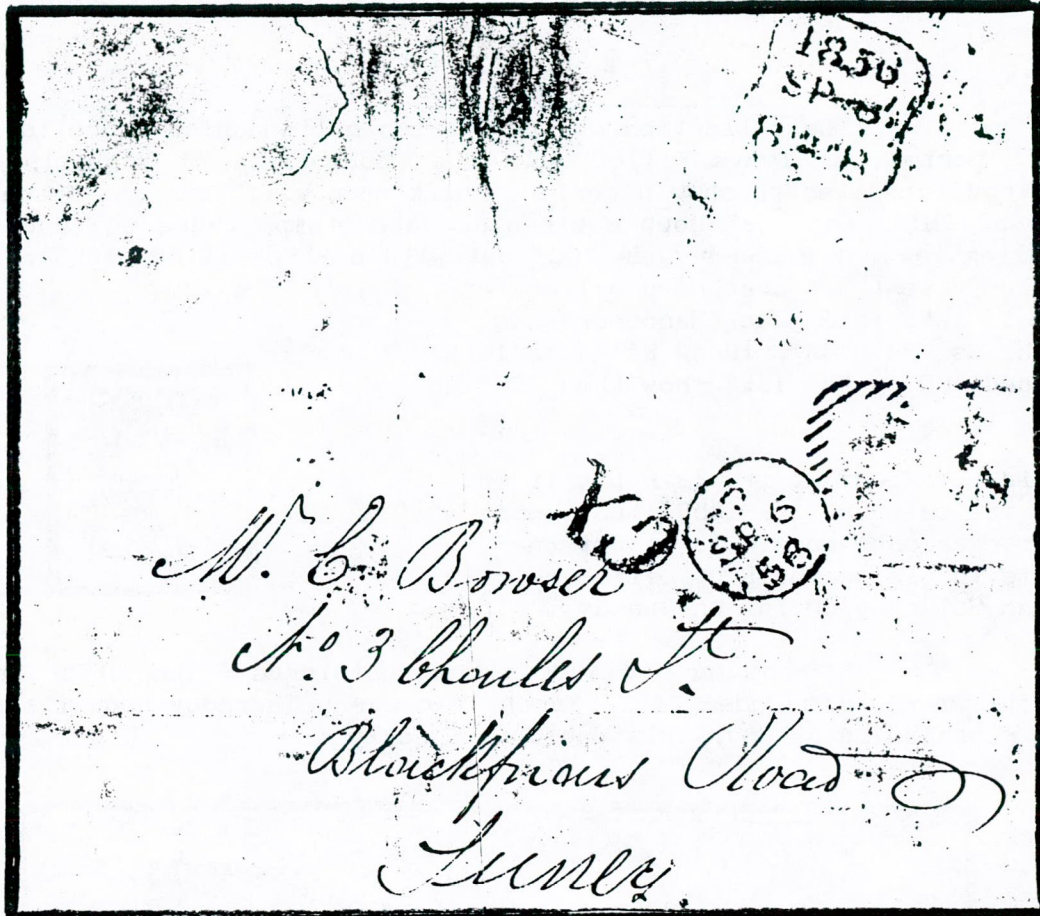 1856
SP
Mr. C. Bowser
No 3 Charles St.
Blackfriars Road
Surrey